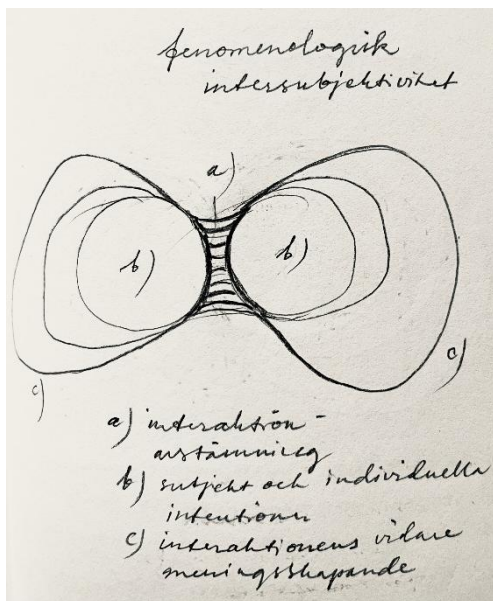 fenomenologisk
intersubjektivitet
a)
b)
b)
c)
c)
a) interaktion -
avstämning
b) subjekt och individuella
intentioner
c) interaktionens vidare
meningsskapande